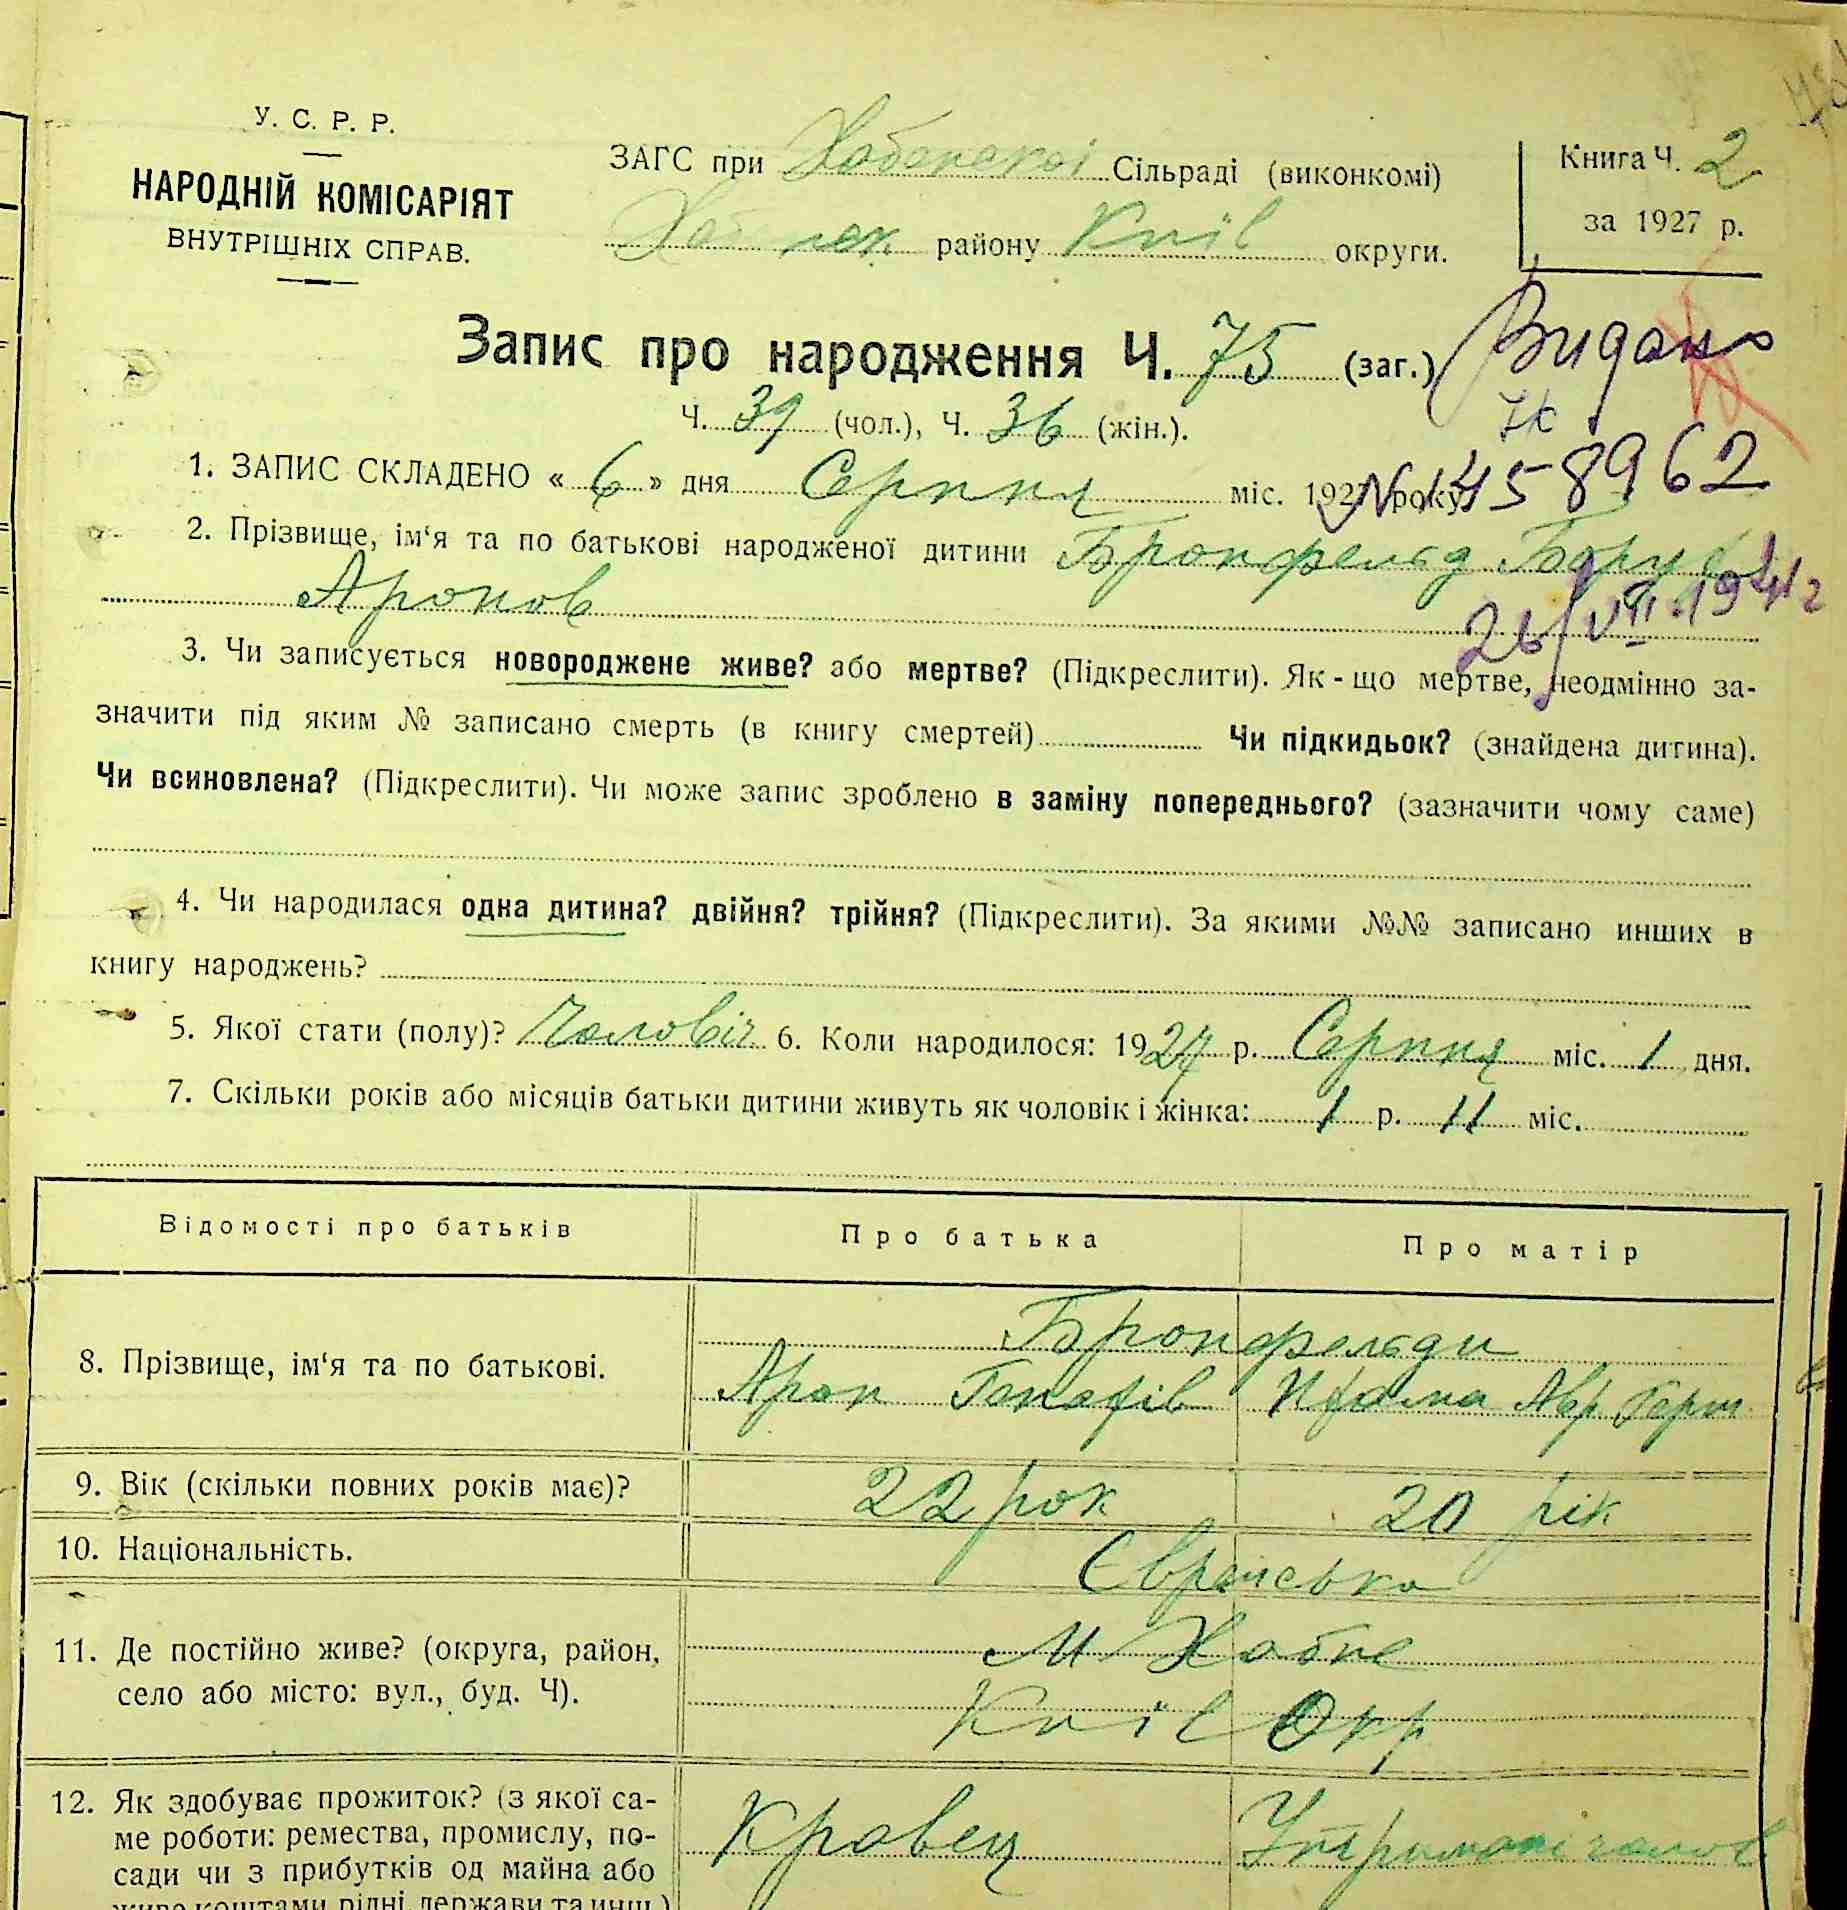 У. С. Р. Р.
НАРОДНІЙ КОМІСАРІЯТ
ВНУТРІШНІХ СПРАВ.
ЗАГС при Хабенской Сільраді (виконкомі)
району Киів округи.
Книга Ч. 2
за 1927 р.
Запис про народження Ч. 75 (заг.)
Видано
Ч. 39 (чол.), Ч. 36 (жін.).
1. ЗАПИС СКЛАДЕНО « 6 » дня Серпня міс. 1927 року
458962
2. Прізвище, ім‘я та по батькові народженої дитини Бронфельд Борух
Аронов
26/VII 1941 г
3. Чи записується новороджене живе? або мертве? (Підкреслити). Як-що мертве, неодмінно за-
значити під яким № записано смерть (в книгу смертей) Чи підкидьок? (знайдена дитина).
Чи всиновлена? (Підкреслити). Чи може запис зроблено в заміну попереднього? (зазначити чому саме)
4. Чи народилася одна дитина? двійня? трійня? (Підкреслити). За якими №№ записано инших в
книгу народжень?
5. Якої стати (полу)? Чоловіч 6. Коли народилося: 1927 р. Серпня міс. 1 дня.
7. Скільки років або місяців батьки дитини живуть як чоловік і жінка: 1 р. 11 міс.
Відомості про батьків Про батька Про матір
Бронфельди
8. Прізвище, ім‘я та по батькові. Арон Авр
9. Вік (скільки повних років має)? 22 рок 20 рік
10. Національність. Єврейська
11. Де постійно живе? (округа, район, М Хабне
село або місто: вул., буд. Ч). Киів Окр
12. Як здобуває прожиток? (з якої са-
ме роботи: ремества, промислу, по- Кравец
сади чи з прибутків од майна або
живе коштами рідні, держави та инш.)